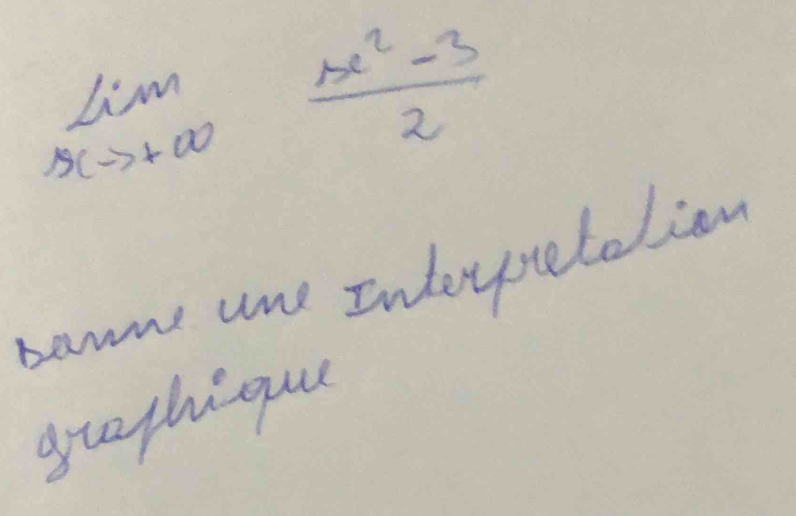 Lim x²-3
x->+∞ 2
Donne une Interpretation
graphique